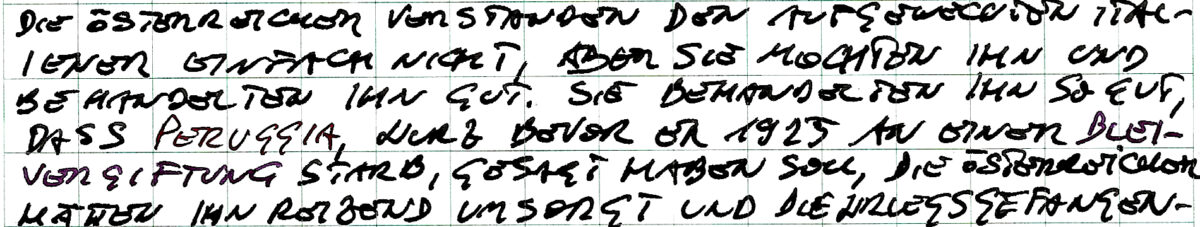 DIE ÖSTERREICHER VERSTANDEN DEN AUFGEWECKTEN ITAL-
IENER EINFACH NICHT, ABER SIE MOCHTEN IHN UND
BEHANDELTEN IHN GUT. SIE BEHANDELTEN IHN SO GUT,
DASS PERUGGIA, KURZ BEVOR ER 1925 AN EINER BLEI-
VERGIFTUNG STARB, GESAGT HABEN SOLL, DIE ÖSTERREICHER
HÄTTEN IHN REIZEND UMSORGT UND DIE KRIEGSGEFANGEN-